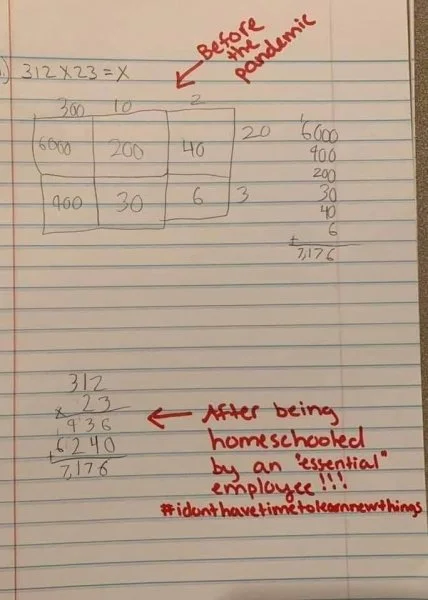 1) 312 x 23 = x
Before
the
pandemic
300 10 2
6000 200 40 20
900 30 6 3
1
6000
900
200
30
40
+ 6
7,176
312
x 23
936
+ 6240
7,176
After being
homeschooled
by an "essential"
employee!!!
#idonthavetimetolearnnewthings